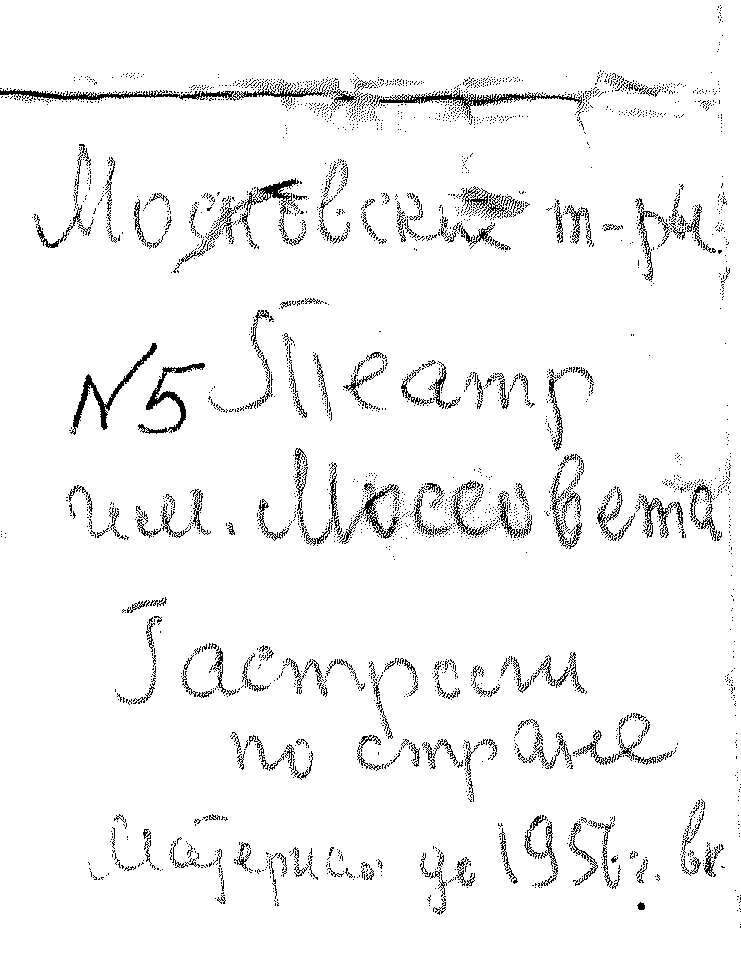 Московские т-ры.
N5 Театр
им. Моссовета
Гастроли
по стране
Материалы до 1956 г. вк